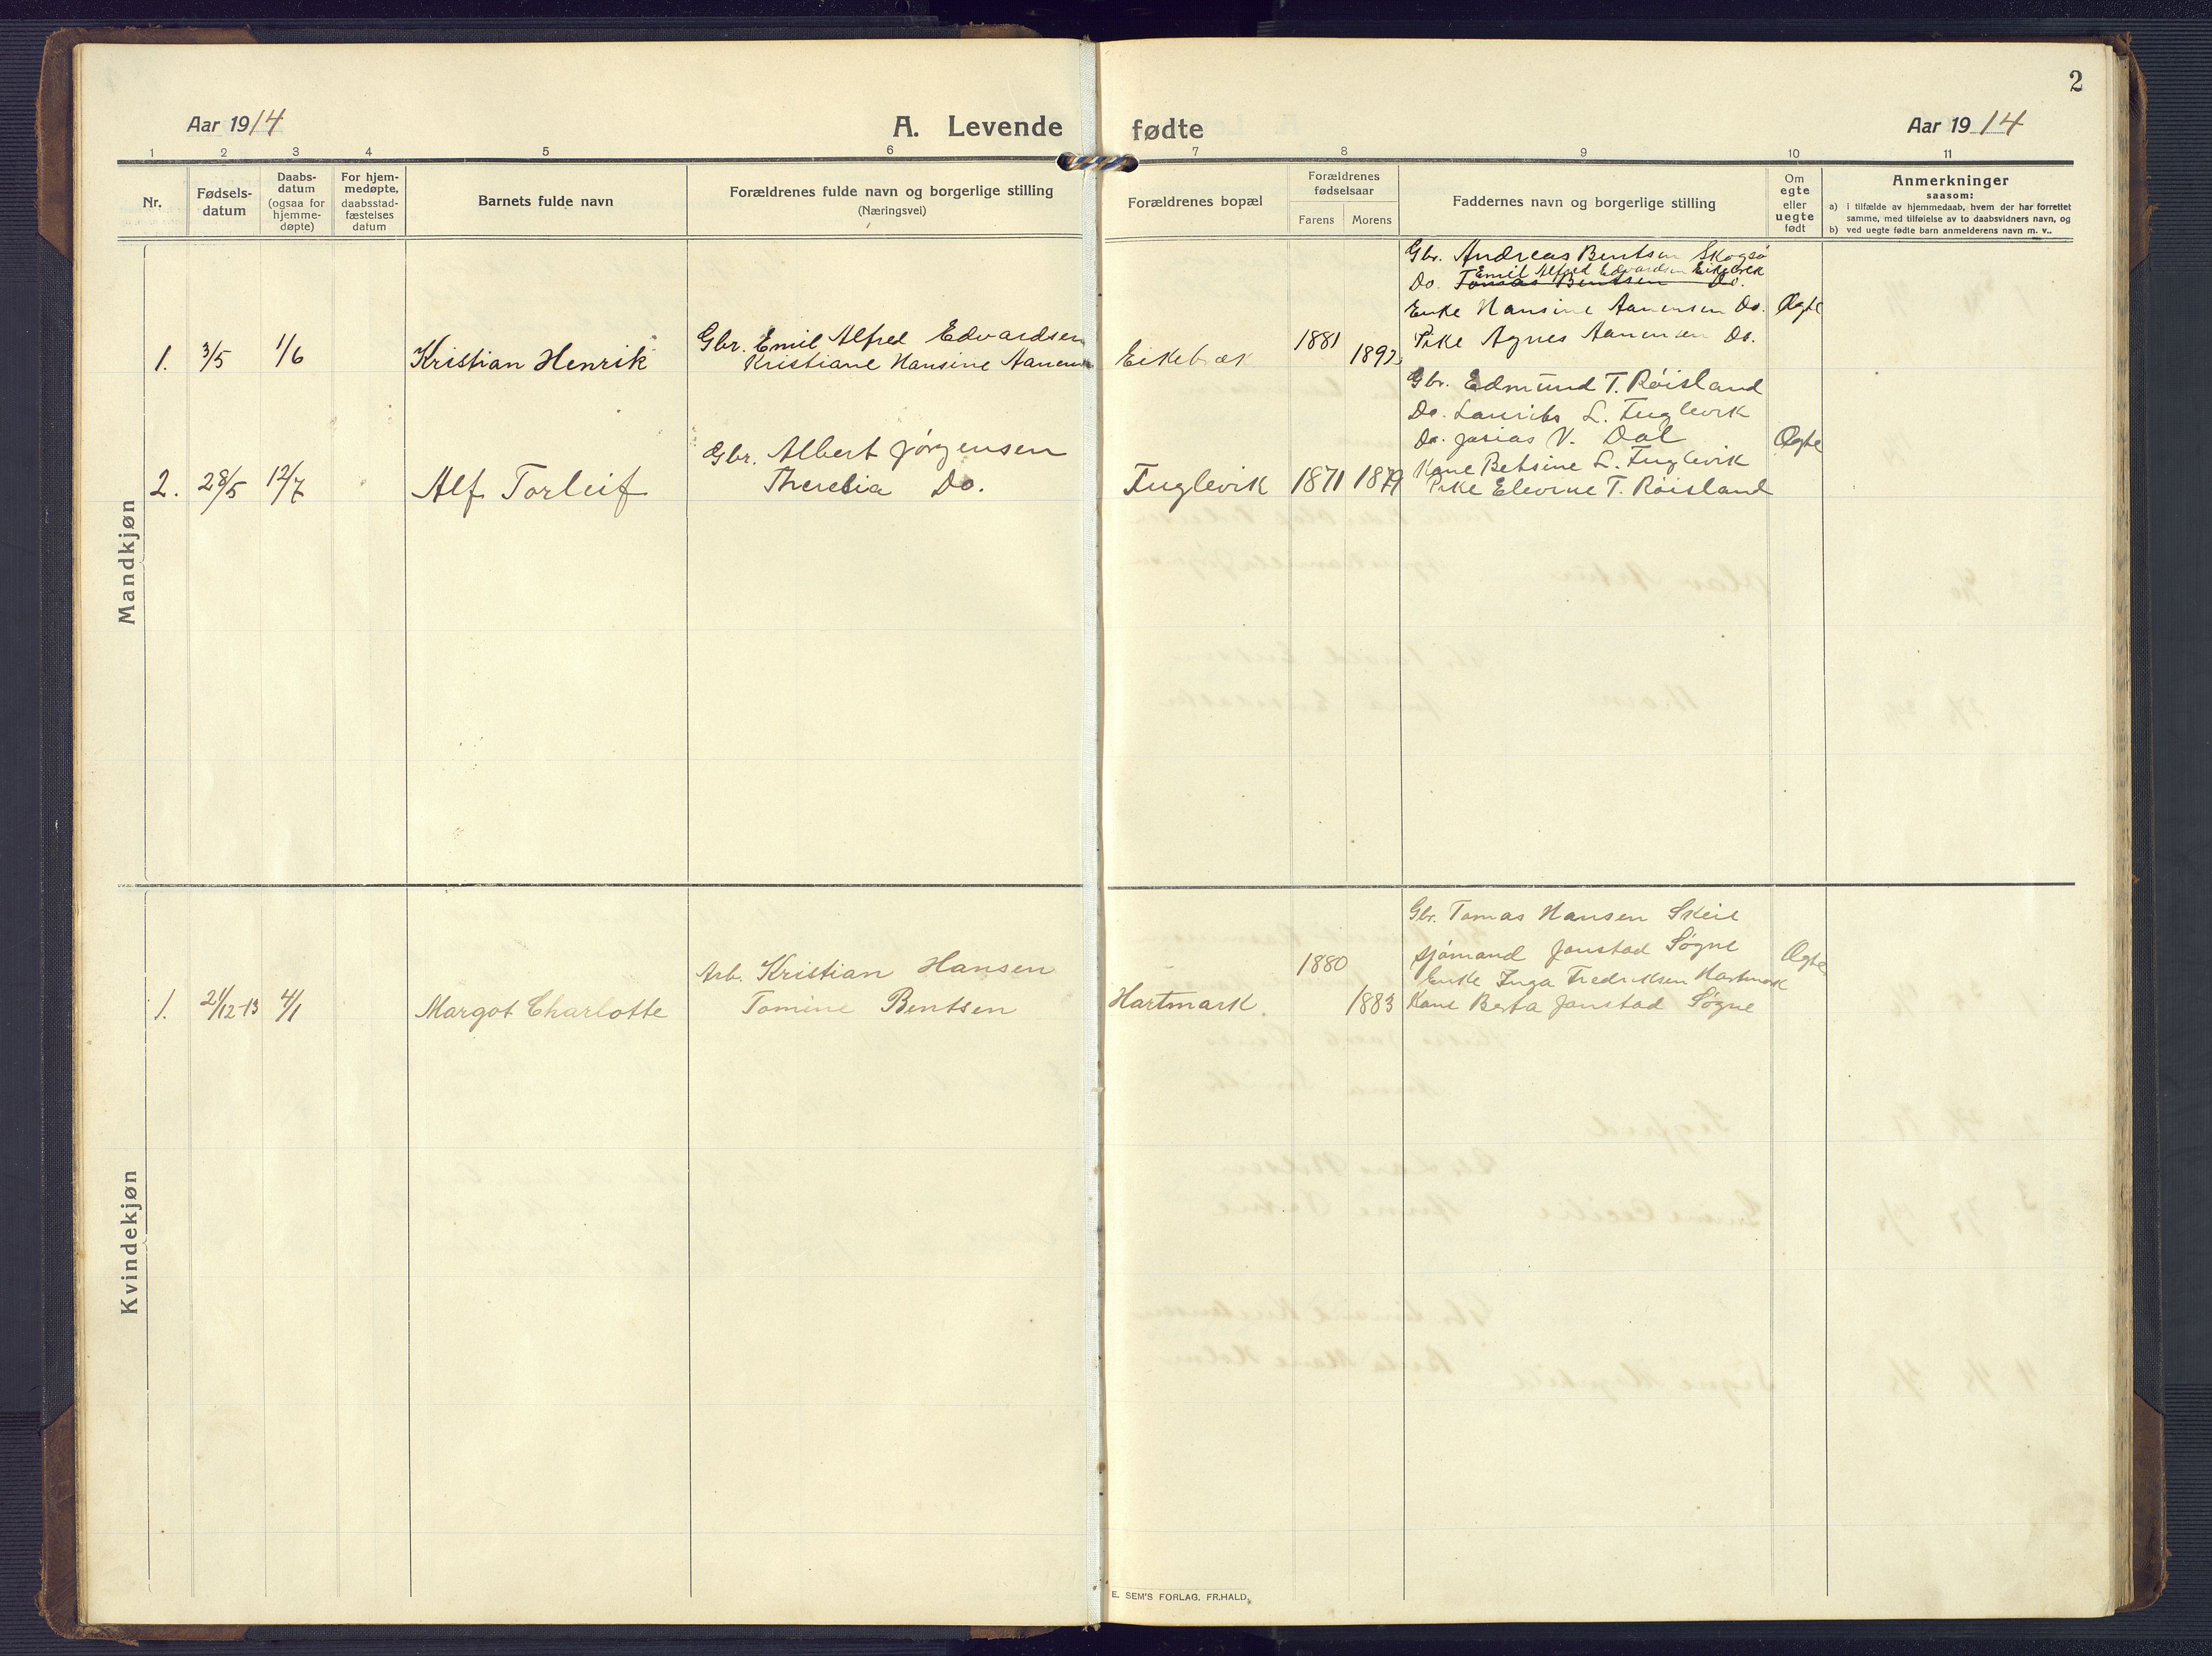 2
Aar 1914
A. Levende fødte
Aar 1914
1 2 3 4 5 6 7 8 9 10 11
Nr.
Fødsels-
datum
Daabs-
datum
(ogsaa for
hjemme-
døpte)
For hjem-
medøpte,
daabsstad-
fæstelses
datum
Barnets fulde navn
Forældrenes fulde navn og borgerlige stilling
(Næringsvei)
Forældrenes bopæl
Forældrenes
fødselsaar
Farens Morens
Faddernes navn og borgerlige stilling
Om
egte
eller
uegte
født
Anmerkninger
saasom:
a) i tilfælde av hjemmedaab, hvem der har forrettet
samme, med tilføielse av to daabsvidners navn, og
b) ved uegte fødte barn anmelderens navn m. v..
Mandkjøn
1. 3/5 1/6 Kristian Henrik
Gbr. Emil Alfred Edvardsen
Kristiane Hansine Aanensen
Eikebræk
1881
Gbr. Andreas Bentsen Skogsø
Emil Alfred Edvardsen Eikebræk
Do. Tomas Bentsen Do.
Enke Hansine Aanensen Do.
Pike Agnes Aanensen Do.
Ægte
2. 28/5 12/7 Alf Torleif
Gbr. Albert Jørgensen
Theresia Do.
Fuglevik 1871 1879
Gbr. Edmund T. Røisland
Do. Laurits L. Fuglevik
Do. Josias V. Dal
Kone Betsine L. Fuglevik
Pike Elevine T. Røisland
Ægte
Kvindekjøn
1. 21/12-13 4/1 Margot Charlotte
Arb. Kristian Hansen
Tomine Bentsen
Hartmark
1880
1883
Gbr. Tomas Hansen Skeie
Sjømand Jonstad Søgne
Enke Inga Fredriksen Hartmark
Kone Berta Jonstad Søgne
Ægte
E. SEM'S FORLAG. FR.HALD.